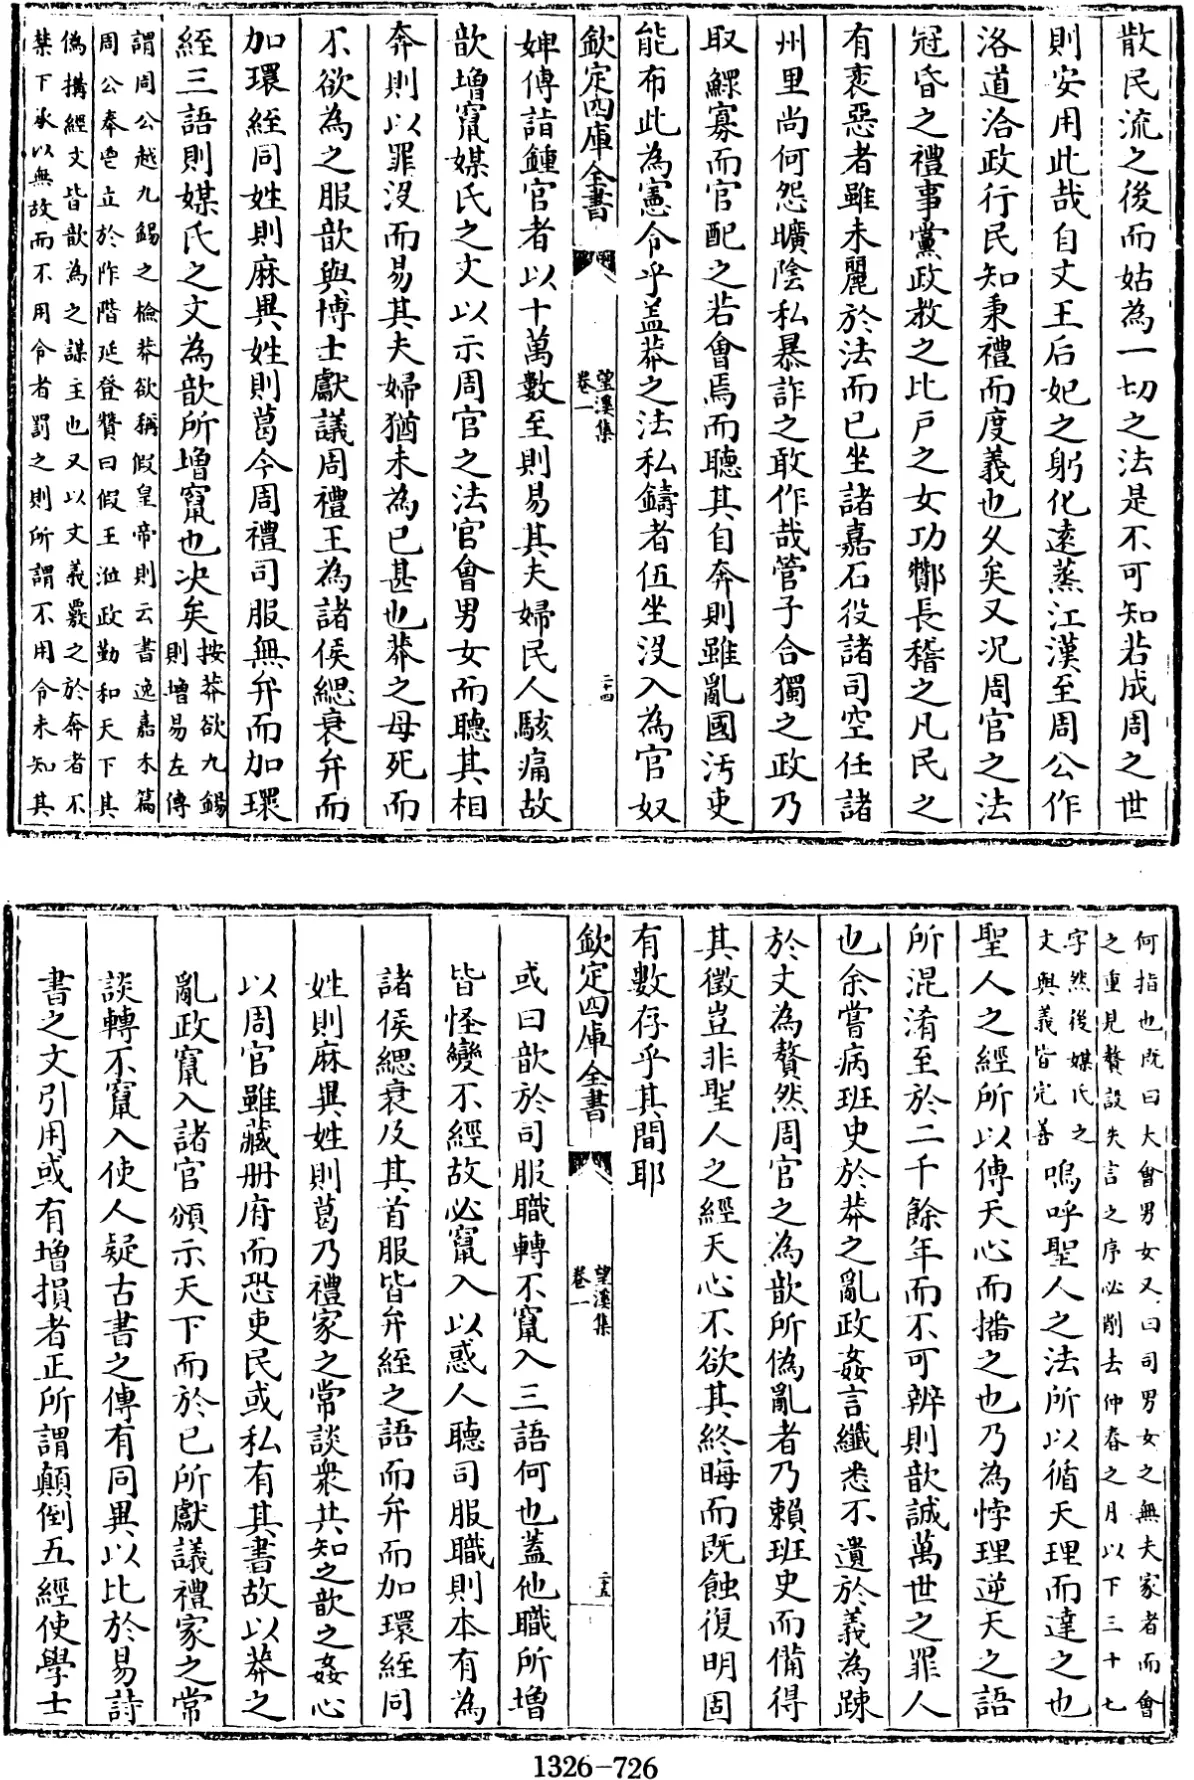 散民流之後而姑為一切之法是不可知若成周之世
則安用此哉自文王后妃之躬化逺蒸江漢至周公作
洛道洽政行民知秉禮而度義也久矣又况周官之法
冠昏之禮事黨政教之比戶之女功酇長稽之凡民之
有衺惡者雖未麗於法而已坐諸嘉石役諸司空任諸
州里尚何怨曠陰私暴詐之敢作哉管子合獨之政乃
取鰥寡而官配之若會焉而聽其自奔則雖亂國汚吏
能布此為憲令乎盖莽之法私鑄者伍坐沒入為官奴
欽定四庫全書
望溪集
卷一
二十四
婢傳詣鍾官者以十萬數至則易其夫婦民人駭痛故
歆增竄媒氏之文以示周官之法官會男女而聽其相
奔則以罪沒而易其夫婦猶未為已甚也莽之母死而
不欲為之服歆與博士獻議周禮王為諸侯緦衰弁而
加環絰同姓則麻異姓則葛今周禮司服無弁而加環
絰三語則媒氏之文為歆所增竄也决矣
按莽欲九錫
則增易左傳
謂周公越九錫之檢莽欲稱假皇帝則云書逸嘉禾篇
周公奉鬯立於阼階延登贊曰假王涖政勤和天下其
偽搆經文皆歆為之謀主也又以文義覈之於奔者不
禁下承以無故而不用令者罰之則所謂不用令未知其
何指也既曰大會男女又曰司男女之無夫家者而會
之重見贅設失言之序必削去仲春之月以下三十七
字然後媒氏之
文與義皆完善
嗚呼聖人之法所以循天理而達之也
聖人之經所以傳天心而播之也乃為悖理逆天之語
所混淆至於二千餘年而不可辨則歆誠萬世之罪人
也余嘗病班史於莽之亂政姦言纖悉不遺於義為踈
於文為贅然周官之為歆所偽亂者乃賴班史而備得
其徵豈非聖人之經天心不欲其終晦而既蝕復明固
有數存乎其間耶
欽定四庫全書
望溪集
卷一
二十五
或曰歆於司服職轉不竄入三語何也蓋他職所增
皆怪變不經故必竄入以惑人聽司服職則本有為
諸侯緦衰及其首服皆弁絰之語而弁而加環絰同
姓則麻異姓則葛乃禮家之常談衆共知之歆之姦心
以周官雖藏册府而恐吏民或私有其書故以莽之
亂政竄入諸官頒示天下而於已所獻議禮家之常
談轉不竄入使人疑古書之傳有同異以比於易詩
書之文引用或有增損者正所謂顛倒五經使學士
1326-726